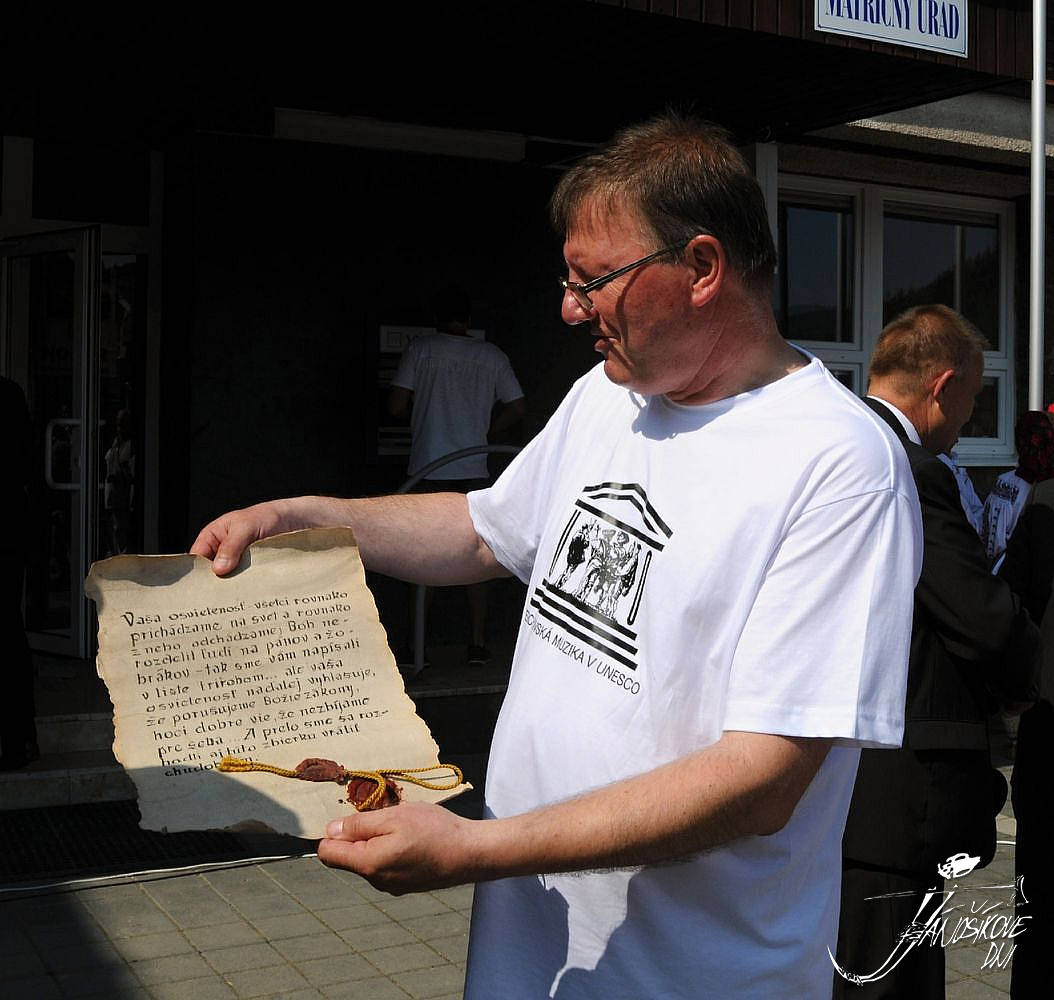 MATRIČNÝ ÚRAD
Vaša osvietenosť - všetci rovnako
prichádzame na svet a rovnako
z neho odchádzame. Boh ne-
rozdelil ľudí na pánov a žo-
brákov - tak sme vám napísali
v liste Trirohom... ale vaša
osvietenosť naďalej vyhlasuje,
že porušujeme Božie zákony,
hoci dobre vie, že nezbíjame
pre seba... A preto sme sa roz-
hodli aj túto zbierku vrátiť
MUZIKA V UNESCO
JÁNOŠÍKOVE
DNI